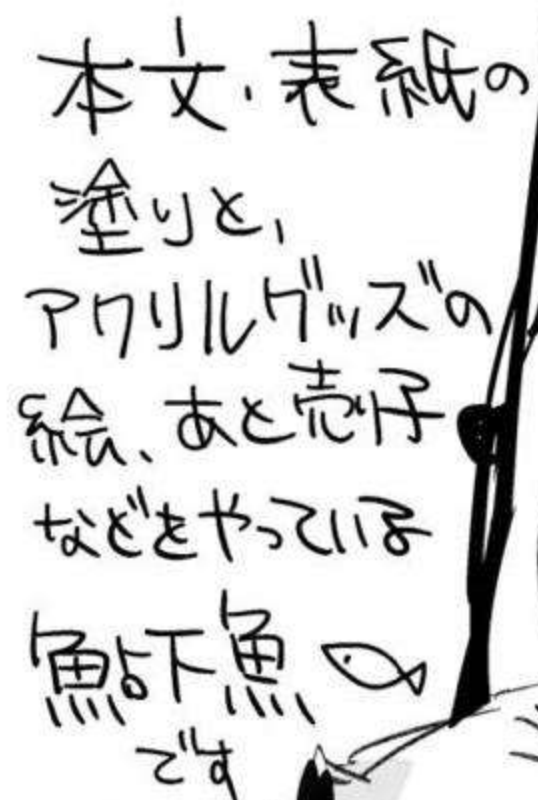 本文・表紙の
塗りと、
アクリルグッズの
絵、あと売り子
などをやっている
鮎下魚
です